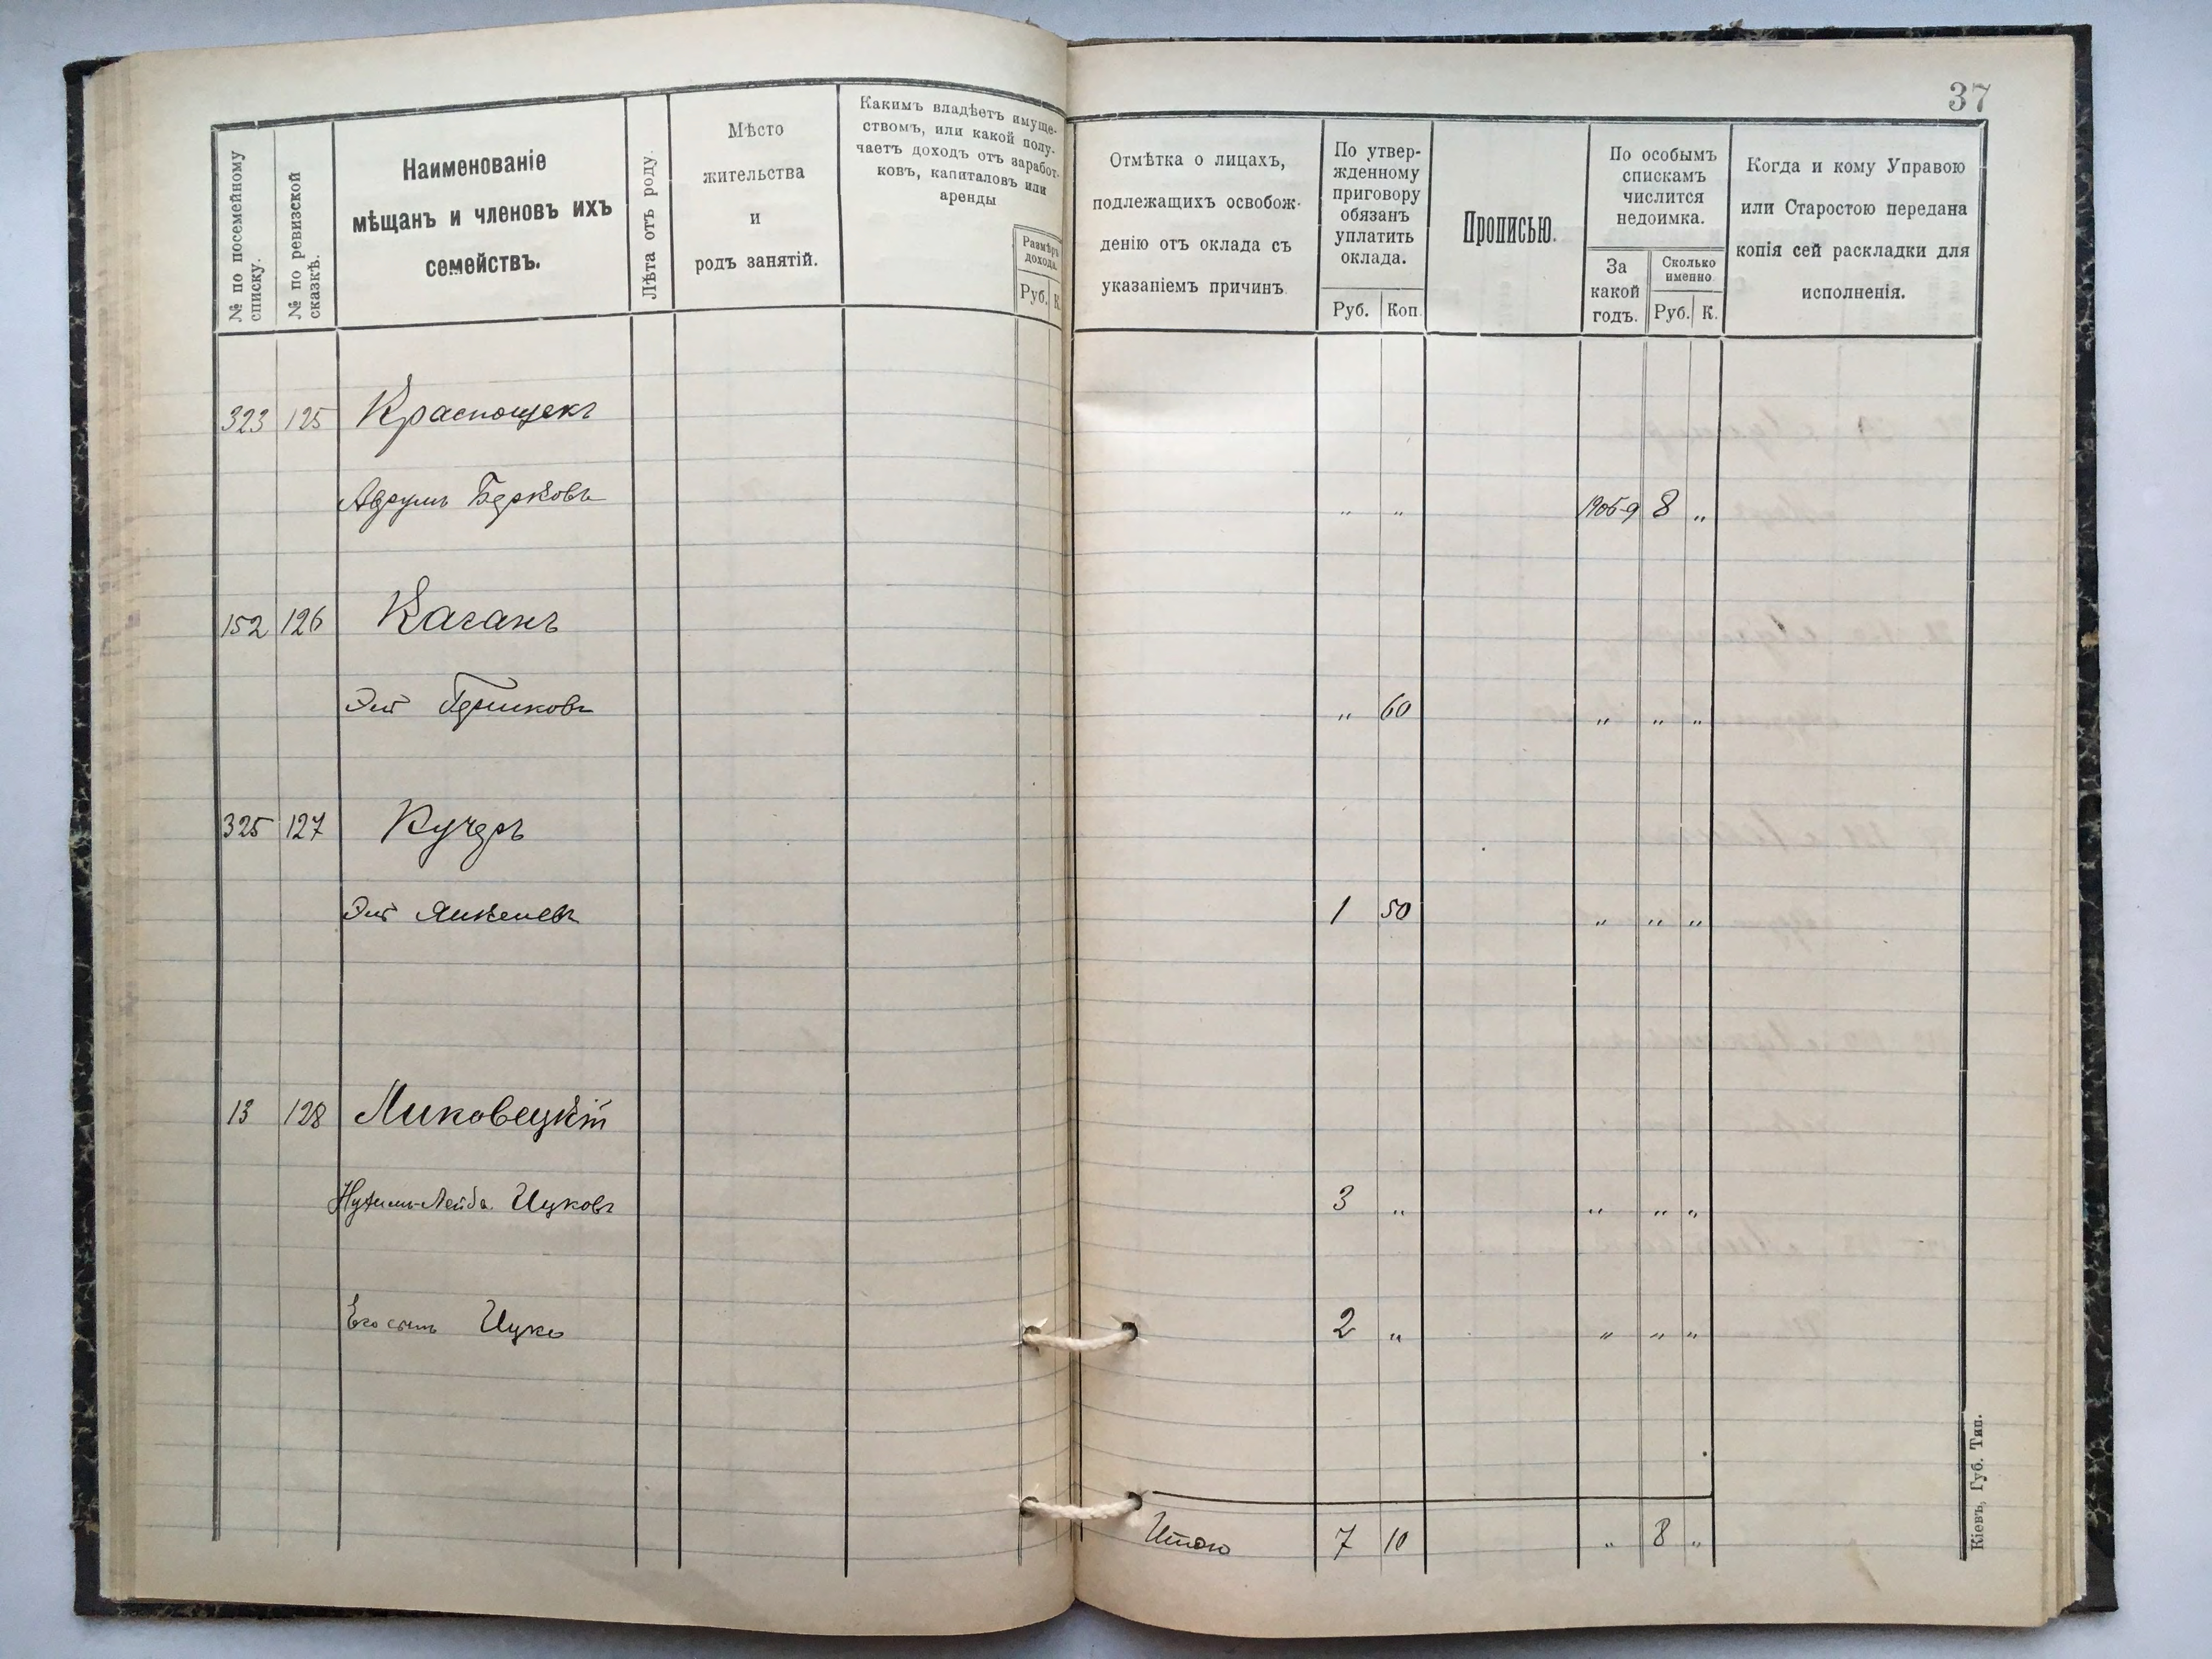 37
№ по посемейному списку.
№ по ревизской сказкѣ.
Наименованіе
мѣщанъ и членовъ ихъ
семействъ.
Лѣта отъ роду.
Мѣсто
жительства
и
родъ занятій.
Какимъ владѣетъ имуще-
ствомъ, или какой полу-
чаетъ доходъ отъ заработ-
ковъ, капиталовъ или
аренды
Размѣръ
дохода.
Руб. К.
Отмѣтка о лицахъ,
подлежащихъ освобож-
денію отъ оклада съ
указаніемъ причинъ.
По утвер-
жденному
приговору
обязанъ
уплатить
оклада.
Руб. Коп.
Прописью.
По особымъ
спискамъ
числится
недоимка.
За
какой
годъ.
Сколько
именно.
Руб. К.
Когда и кому Управою
или Старостою передана
копія сей раскладки для
исполненія.
323 125 Краснощекъ
Берковъ " " 1905-9 8 "
152 126 Каганъ
" 60 " " "
325 127 Кучеръ
Янкелевъ 1 50 " " "
13 128 Миковецкій
Нухимъ-Лейба Ицковъ 3 " " " "
Его сынъ Ицко 2 " " " "
Итого 7 10 " 8 "
Кіевъ, Губ. Тип.